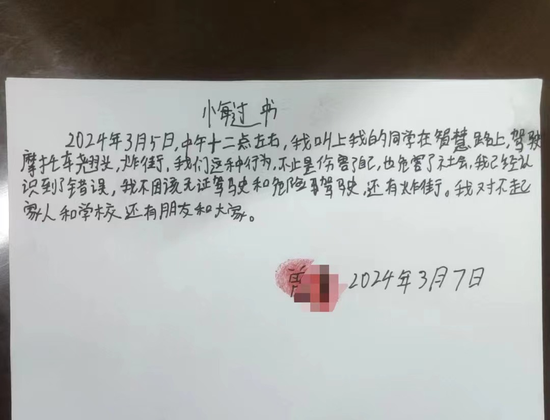 悔过书
2024年3月5日,中午十二点左右,我叫上我的同学在智慧路上,驾驶
摩托车翘头,炸街,我们这种行为,不止是伤害了自己,也危害了社会,我已经认
识到了错误,我不因该无证驾驶和危险驾驶,还有炸街。我对不起
家人和学校还有朋友和大家。
2024年3月7日